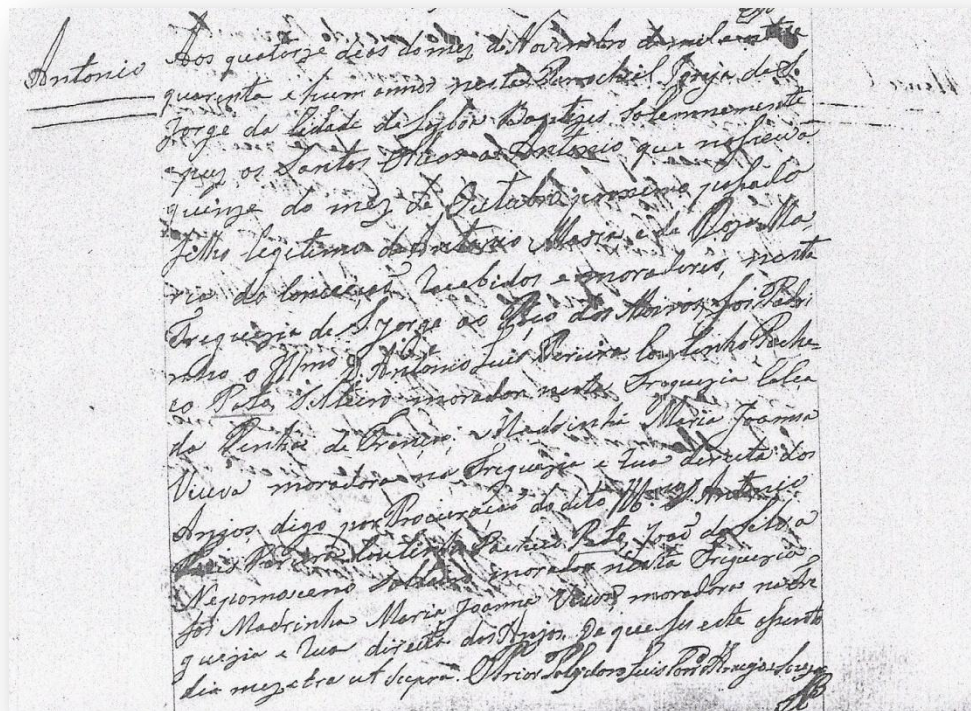 Antonio
Aos quatorze dias do mez de Novembro de mil
quarenta e hum annos nesta Parochial Igreja de S.
Jorge da Cidade de Lxboa Baptizei Solemnemente
e puz os Santos Oleos a Antonio, que nasceu a
quinze do mez de Outubro proximo passado
filho legitimo de Antonio Maria, e de Roza Ma-
ria da Conceição, recebidos e moradores, nesta
Freguezia de S. Jorge ao Poço dos Moiros, foi Padri
nho o Illmo Antonio Luis Pereira Coutinho Pache-
co Pata, Solteiro morador nesta Freguezia Calca
da Penha de França, Madrinha Maria Joanna
Viuva moradora na Freguezia e Rua direita dos
Anjos, digo por Procuração do dito Antonio
Luis Pereira Coutinho Pacheco Pata, João da Silva
Nepomoceno Solteiro, morador nesta Freguezia
foi Madrinha Maria Joanna Viuva, moradora na Fre
guezia e Rua direita dos Anjos. De que fis este assento
dia mez e era ut supra. O Prior Luis